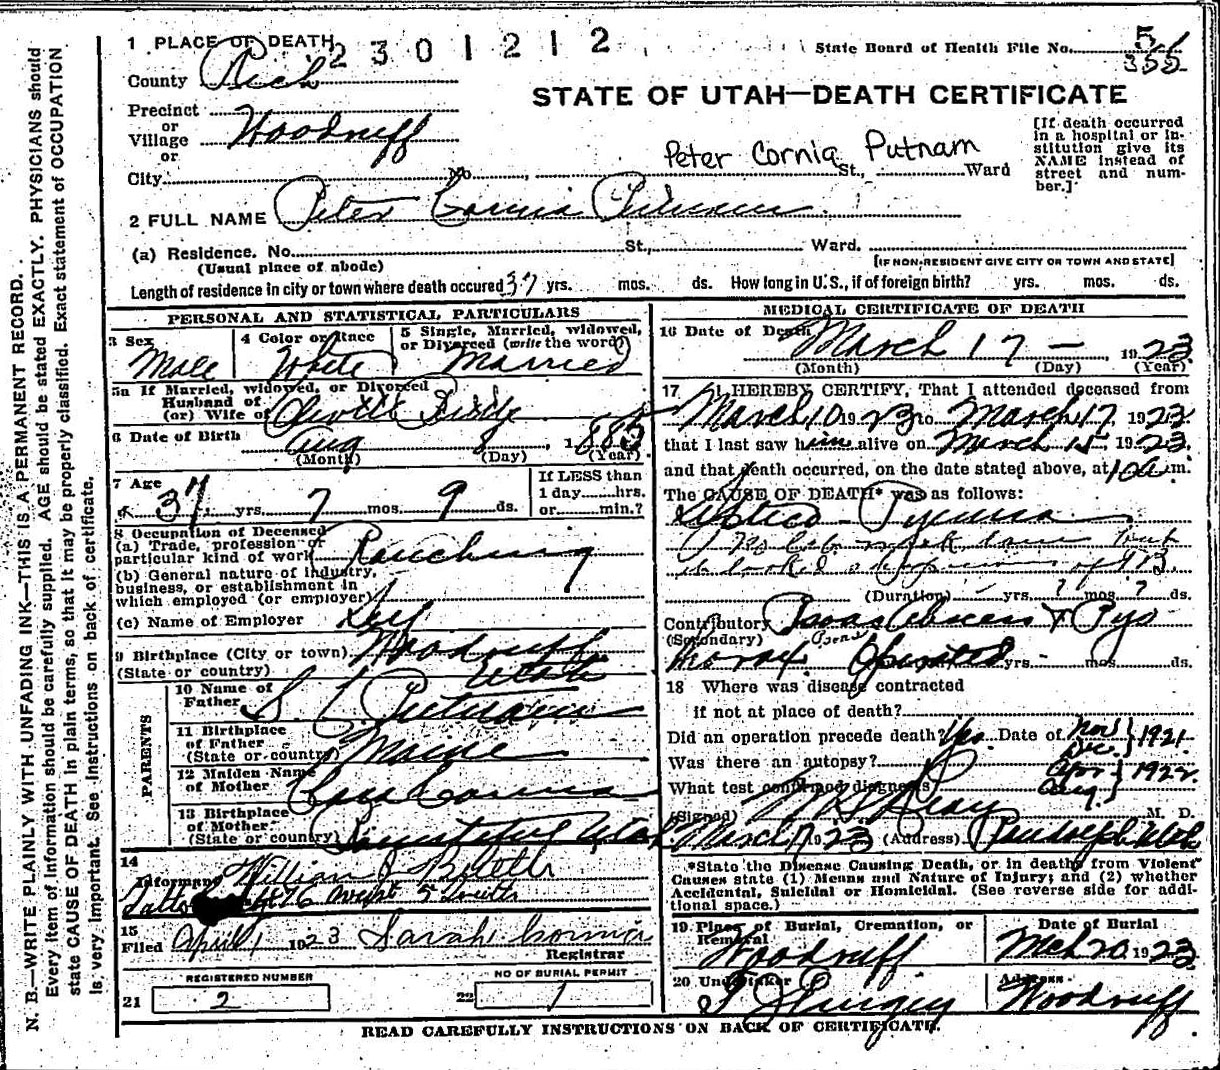 1 PLACE OF DEATH
2 3 0 1 2 1 2
State Board of Health File No. 5
355
County Rich
STATE OF UTAH—DEATH CERTIFICATE
Precinct
or
Village Woodruff
or
City No. , St., Ward
Peter Cornia Putnam
[If death occurred
in a hospital or in-
stitution give its
NAME instead of
street and num-
ber.]
2 FULL NAME Peter Cornia Putnam
(a) Residence. No. St., Ward.
(Usual place of abode) [IF NON-RESIDENT GIVE CITY OR TOWN AND STATE]
Length of residence in city or town where death occured 37 yrs. mos. ds. How long in U.S., if of foreign birth? yrs. mos. ds.
PERSONAL AND STATISTICAL PARTICULARS
3 Sex
Male
4 Color or Race
White
5 Single, Married, widowed,
or Divorced (write the word)
Married
5a If Married, widowed, or Divorced
Husband of
(or) Wife of
6 Date of Birth Aug 8, 1885
(Month) (Day) (Year)
7 Age
37 yrs. 7 mos. 9 ds.
If LESS than
1 day hrs.
or min.?
8 Occupation of Deceased
(a) Trade, profession or
particular kind of work Ranching
(b) General nature of industry,
business, or establishment in
which employed (or employer)
(c) Name of Employer Self
9 Birthplace (City or town) Woodruff
(State or country) Utah
PARENTS
10 Name of
Father S. C. Putnam
11 Birthplace
of Father
(State or country) Maine
12 Maiden Name
of Mother Cornia
13 Birthplace
of Mother
(State or country) Bountiful Utah
14
Informant William
15
Filed April 1 1923 Sarah Cornia
Registrar
REGISTERED NUMBER
21 2
NO OF BURIAL PERMIT
22 1
MEDICAL CERTIFICATE OF DEATH
16 Date of Death March 17 — , 1923
(Month) (Day) (Year)
17 I HEREBY CERTIFY, That I attended deceased from
March 10 1923 to March 17 1923
that I last saw him alive on March 15 1923.
and that death occurred, on the date stated above, at 10 a m.
The CAUSE OF DEATH* was as follows:
Septico - Pyemia
(Duration) yrs. ? mos. ? ds.
Contributory Psoas Abscess & Pyo
(Secondary) Psoas
thorax Operated yrs. mos. ds.
18 Where was disease contracted
if not at place of death?
Did an operation precede death? Yes Date of Nov Dec } 1921
Was there an autopsy? Apr Aug } 1922
What test confirmed diagnosis
(Signed) M. D.
March 17 1923 (Address) Randolph Utah
*State the Disease Causing Death, or in deaths from Violent
Causes state (1) Means and Nature of Injury; and (2) whether
Accidental, Suicidal or Homicidal. (See reverse side for addi-
tional space.)
19 Place of Burial, Cremation, or
Removal
Woodruff
Date of Burial
Mch 20 1923
20 Undertaker
Address
Woodruff
READ CAREFULLY INSTRUCTIONS ON BACK OF CERTIFICATE.
N. B.—WRITE PLAINLY WITH UNFADING INK—THIS IS A PERMANENT RECORD.
Every item of Information should be carefully supplied. AGE should be stated EXACTLY. PHYSICIANS should
state CAUSE OF DEATH in plain terms, so that it may be properly classified. Exact statement of OCCUPATION
is very important. See Instructions on back of certificate.